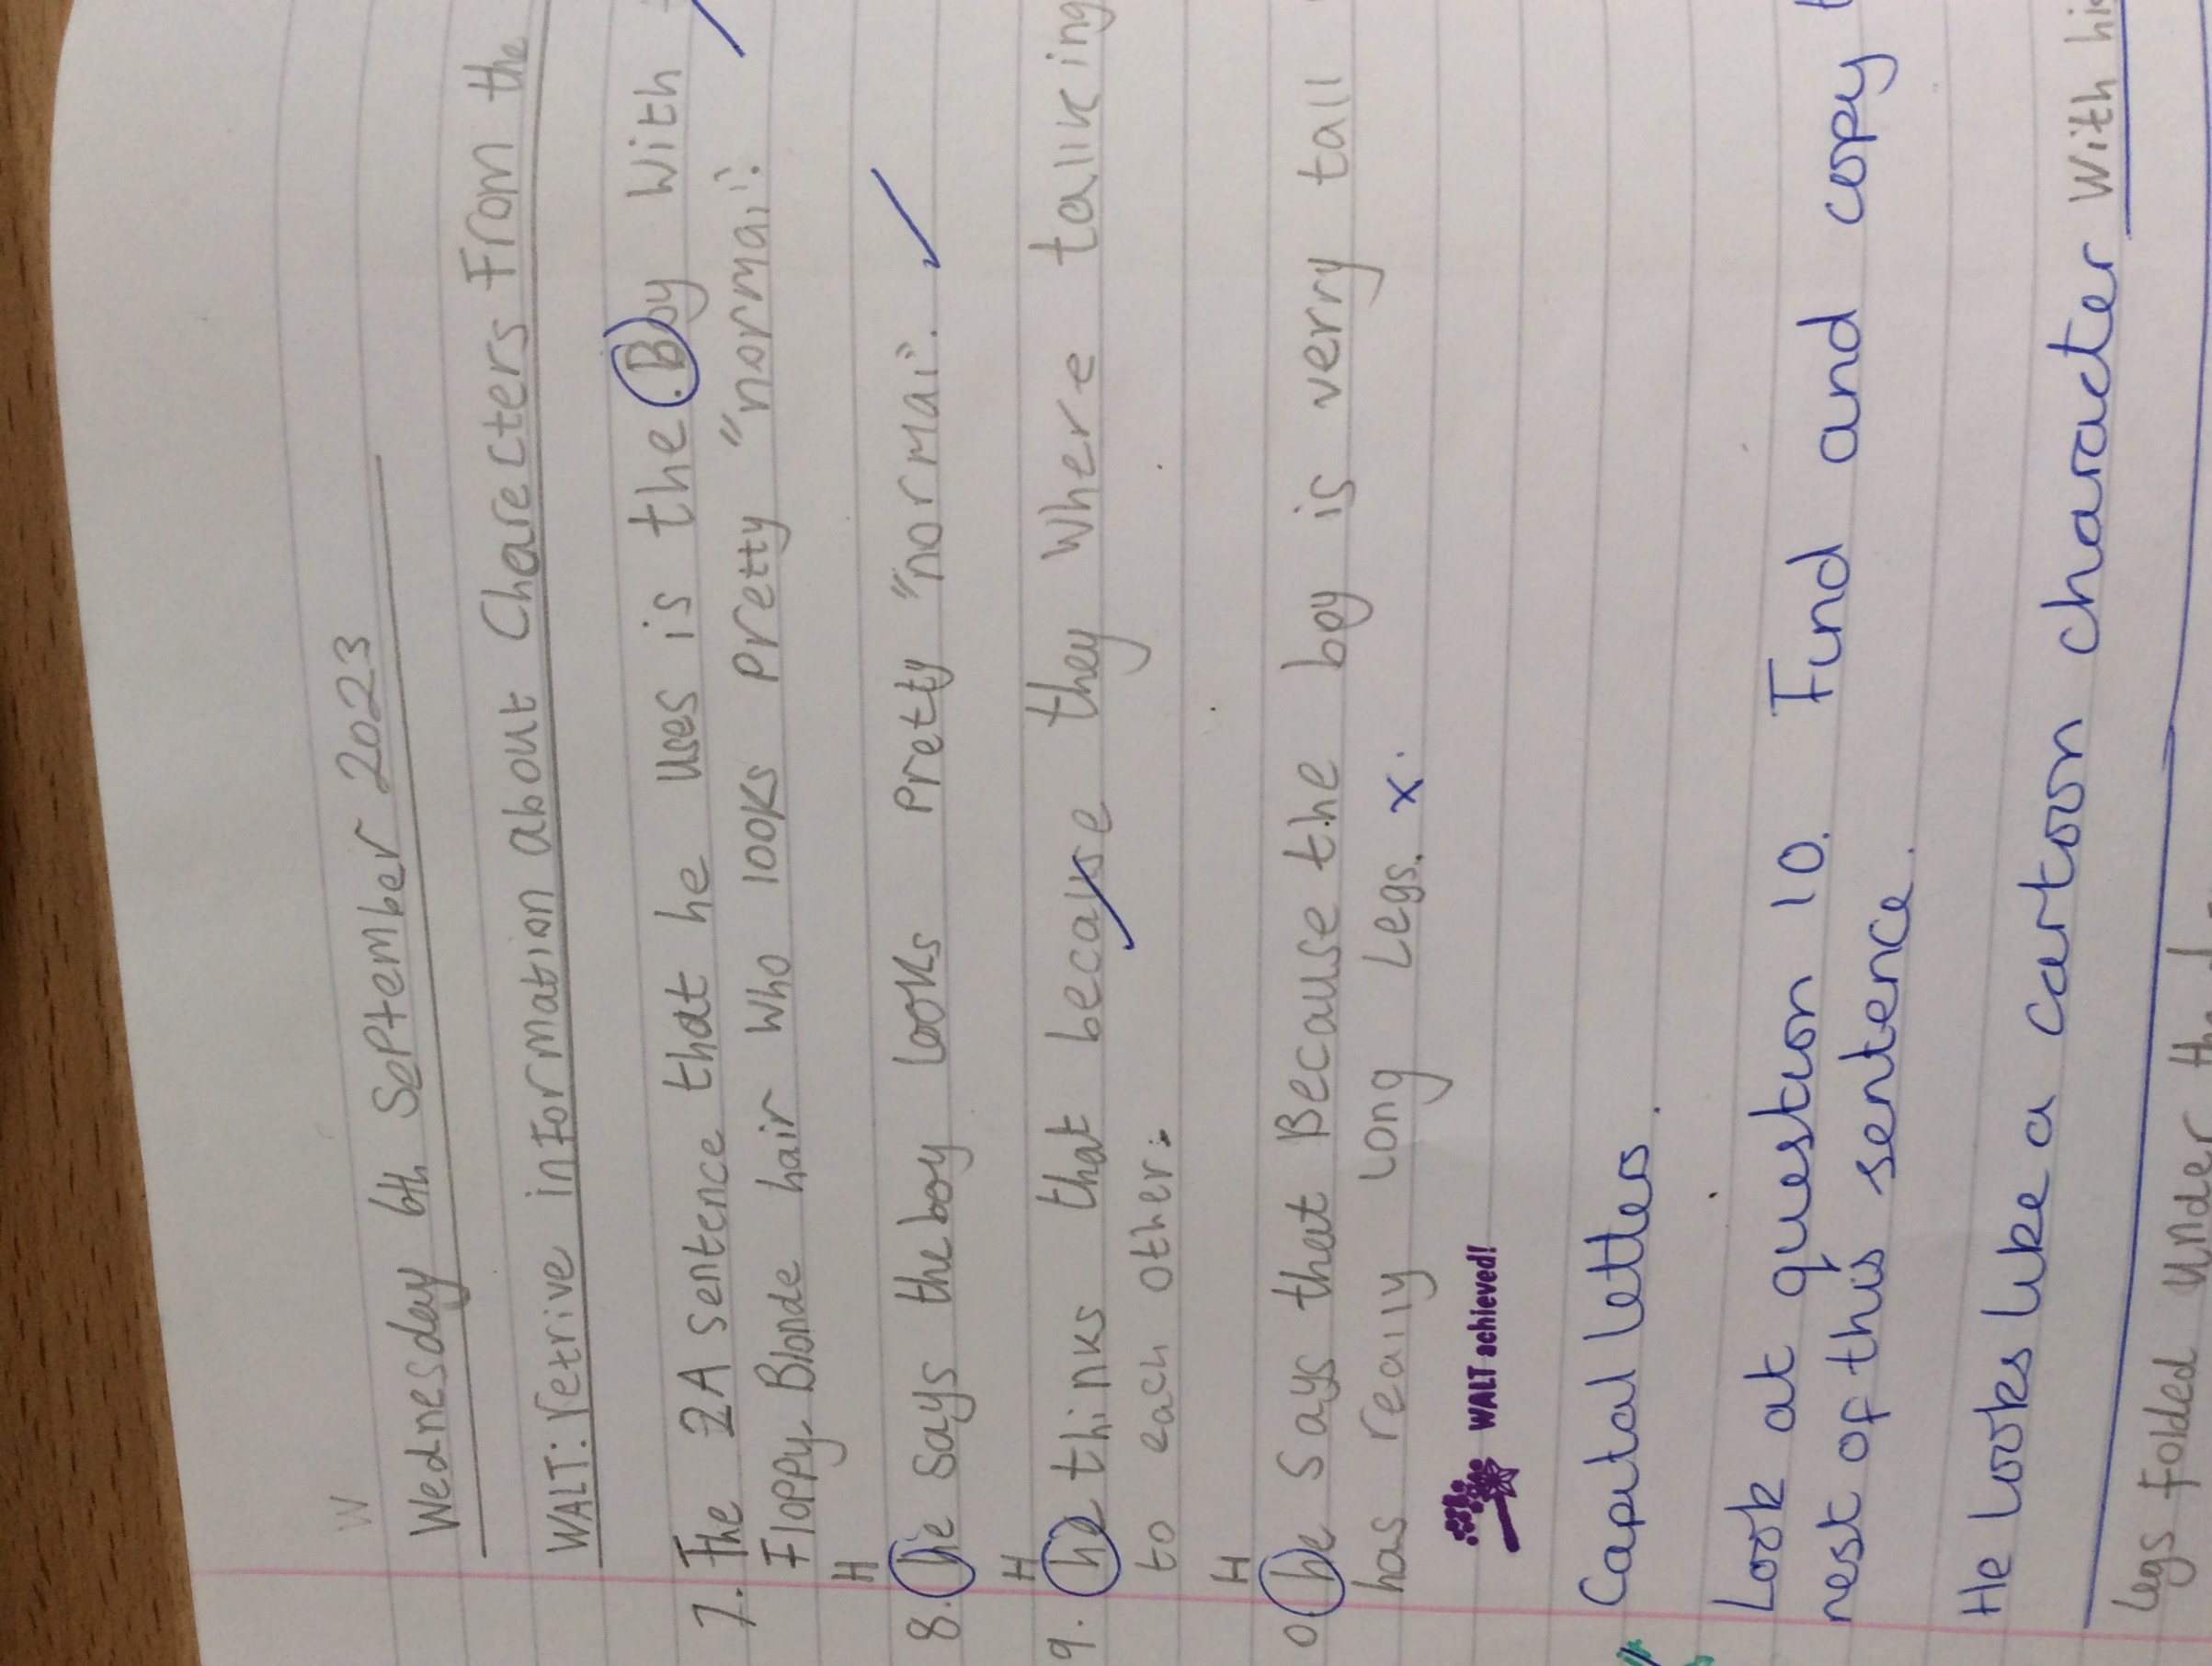 W
Wednesday 6th September 2023
WALT: retrive information about Charecters From the
7. The 2A sentence that he uses is the .Boy With
Floppy Blonde hair Who looks Pretty "normal".
H
8. he says the boy looks Pretty "normal".
H
9. he thinks that because they Where talking
to each other.
H
0. he says that Because the boy is verry tall
has really long Legs. x
WALT achieved!
Capital letters
Look at question 10. Find and copy
rest of this sentence.
He looks like a cartoon character With his
legs Folded under